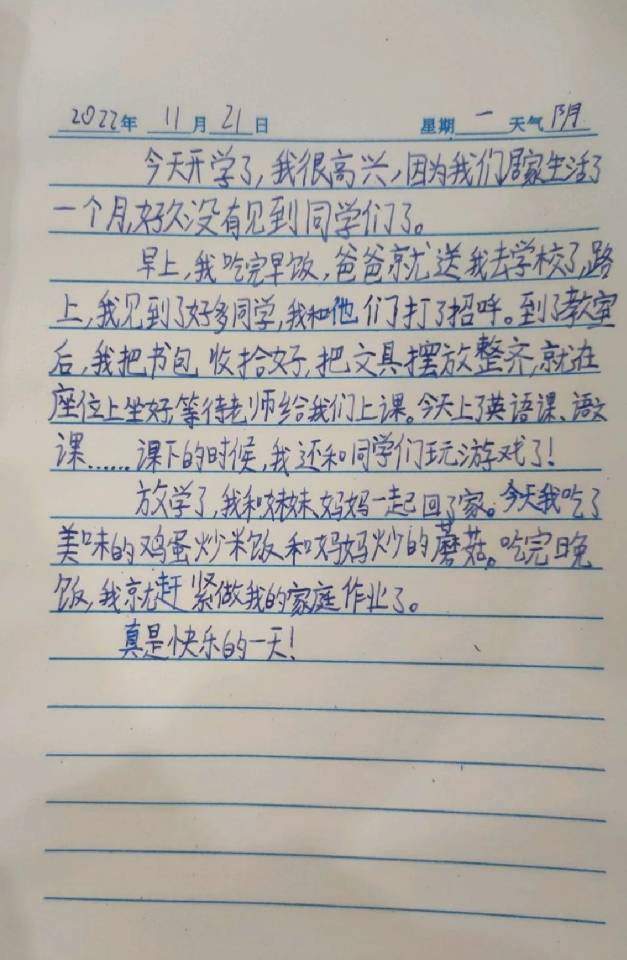 2022年 11月21日 星期一天气阴
今天开学了,我很高兴,因为我们居家生活了
一个月,好久没有见到同学们了。
早上,我吃完早饭,爸爸就送我去学校了,路
上,我见到了好多同学,我和他们打了招呼。到了教室
后,我把书包收拾好,把文具摆放整齐,就在
座位上坐好,等待老师给我们上课。今天上了英语课、语文
课……课下的时候,我还和同学们玩游戏了!
放学了,我和妹妹、妈妈一起回了家。今天我吃了
美味的鸡蛋炒米饭和妈妈炒的蘑菇。吃完晚
饭,我就赶紧做我的家庭作业了。
真是快乐的一天!